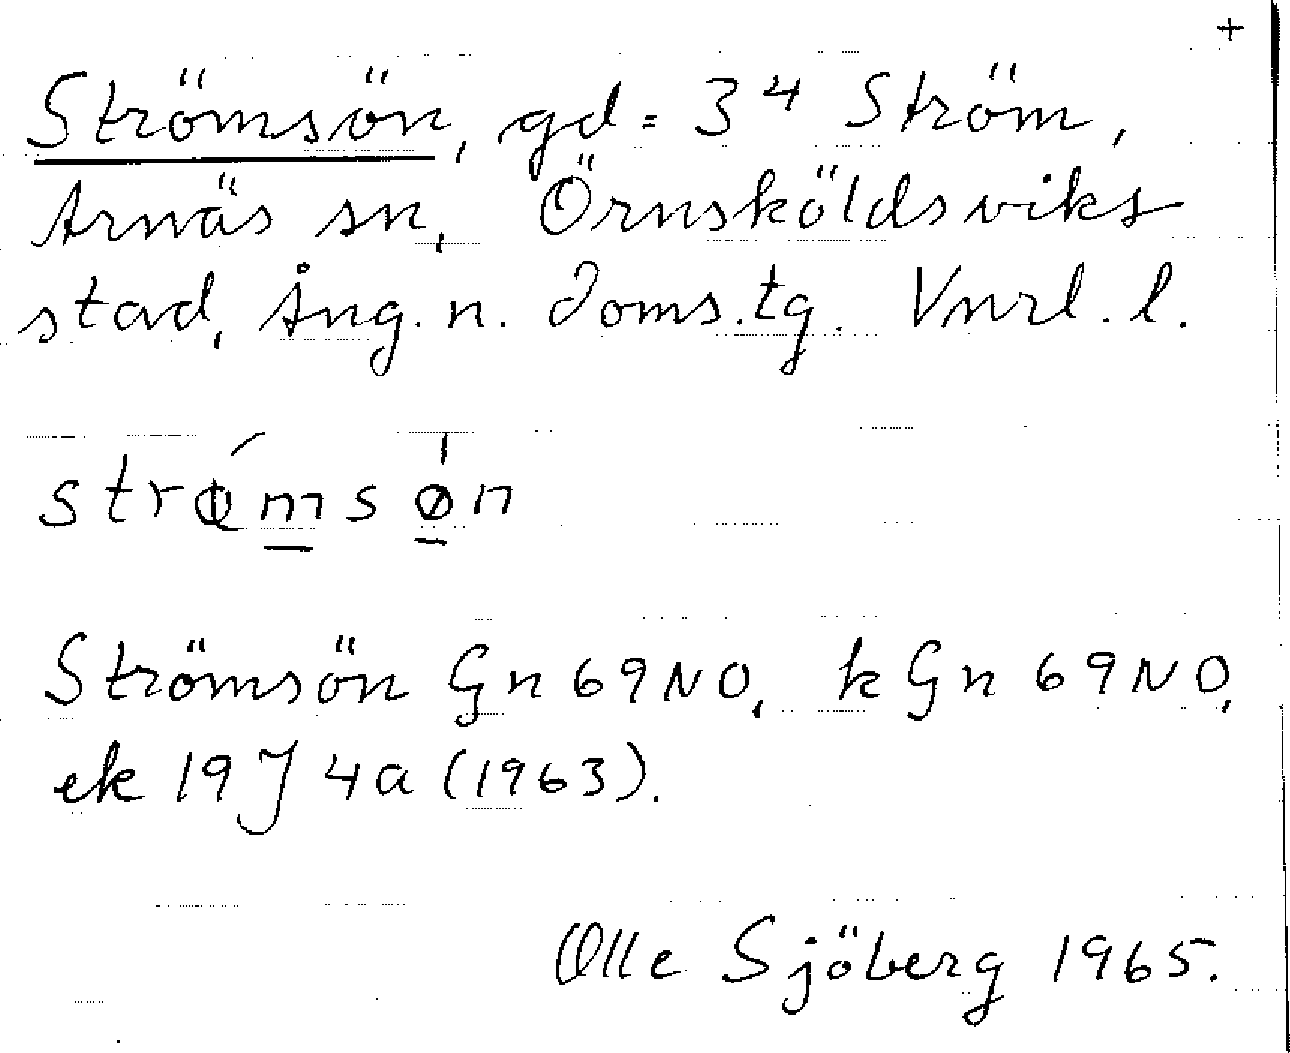 +
Strömsön, gd = 3⁴ Ström,
Arnäs sn, Örnsköldsviks
stad, Ång. n. doms.tg. Vnrl. l.
strǿ̨msøn
Strömsön Gn 69 NO, k Gn 69 NO,
ek 19 J 4a (1963).
Olle Sjöberg 1965.